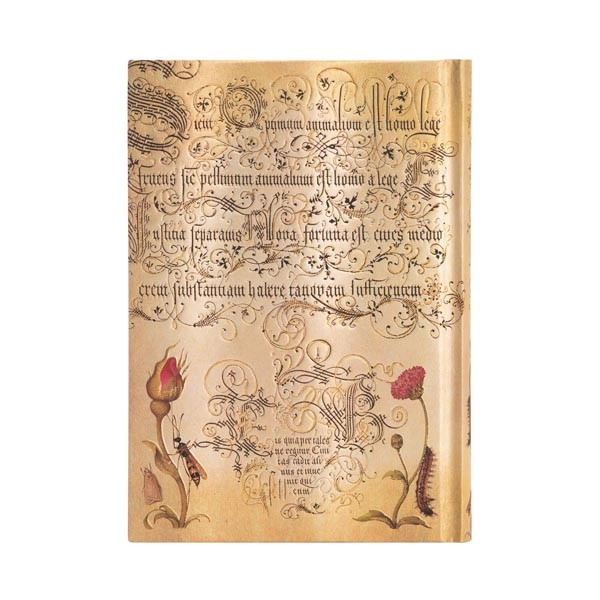 Sicut Optimum animalium est homo lege
fruens sic pessimum animalium est homo a lege
Iustitia separatus Bona fortuna est cives medio
crem substantiam habere tanquam sufficientem
is quia per tales
ne regitur Civi
tas cadit ali
nus et inve
nit qui
cum